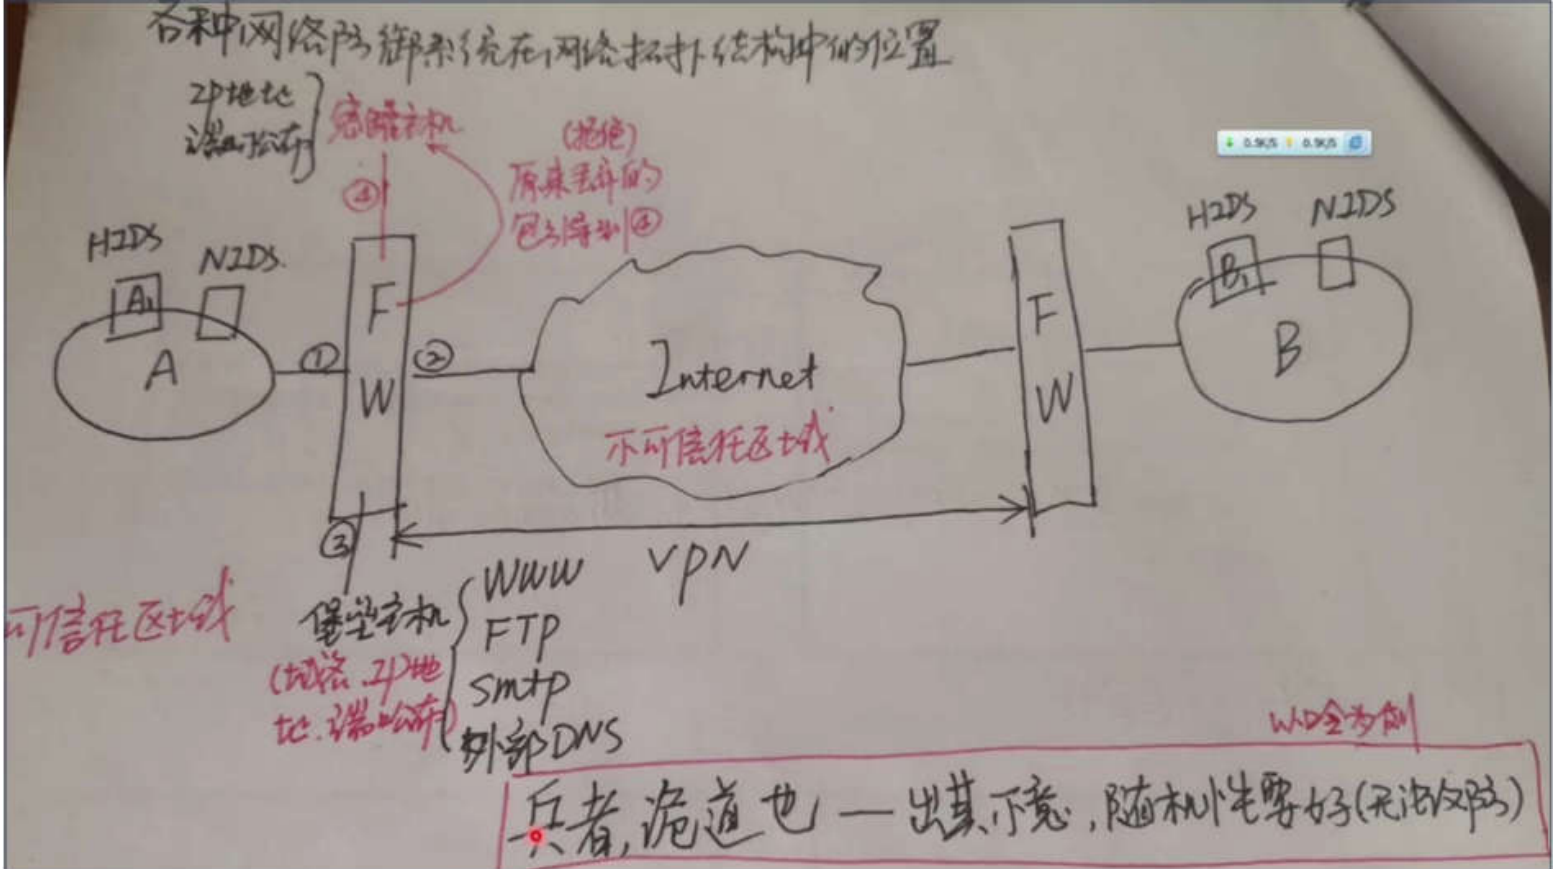 各种网络防御系统在网络拓扑结构中的位置
IP地址
端口公开
密罐主机
(拒绝)
原来丢弃的
包引导到④
④
↓ 0.9K/S ↑ 0.9K/S
HIDS
NIDS
A₁
A
①
F
W
②
Internet
不可信任区域
F
W
HIDS
NIDS
B₁
B
③
VPN
可信任区域
堡垒主机
(域名、IP地
址、端口公开)
WWW
FTP
smtp
外部DNS
兵者,诡道也 — 出其不意,随机性要好(无法设防)